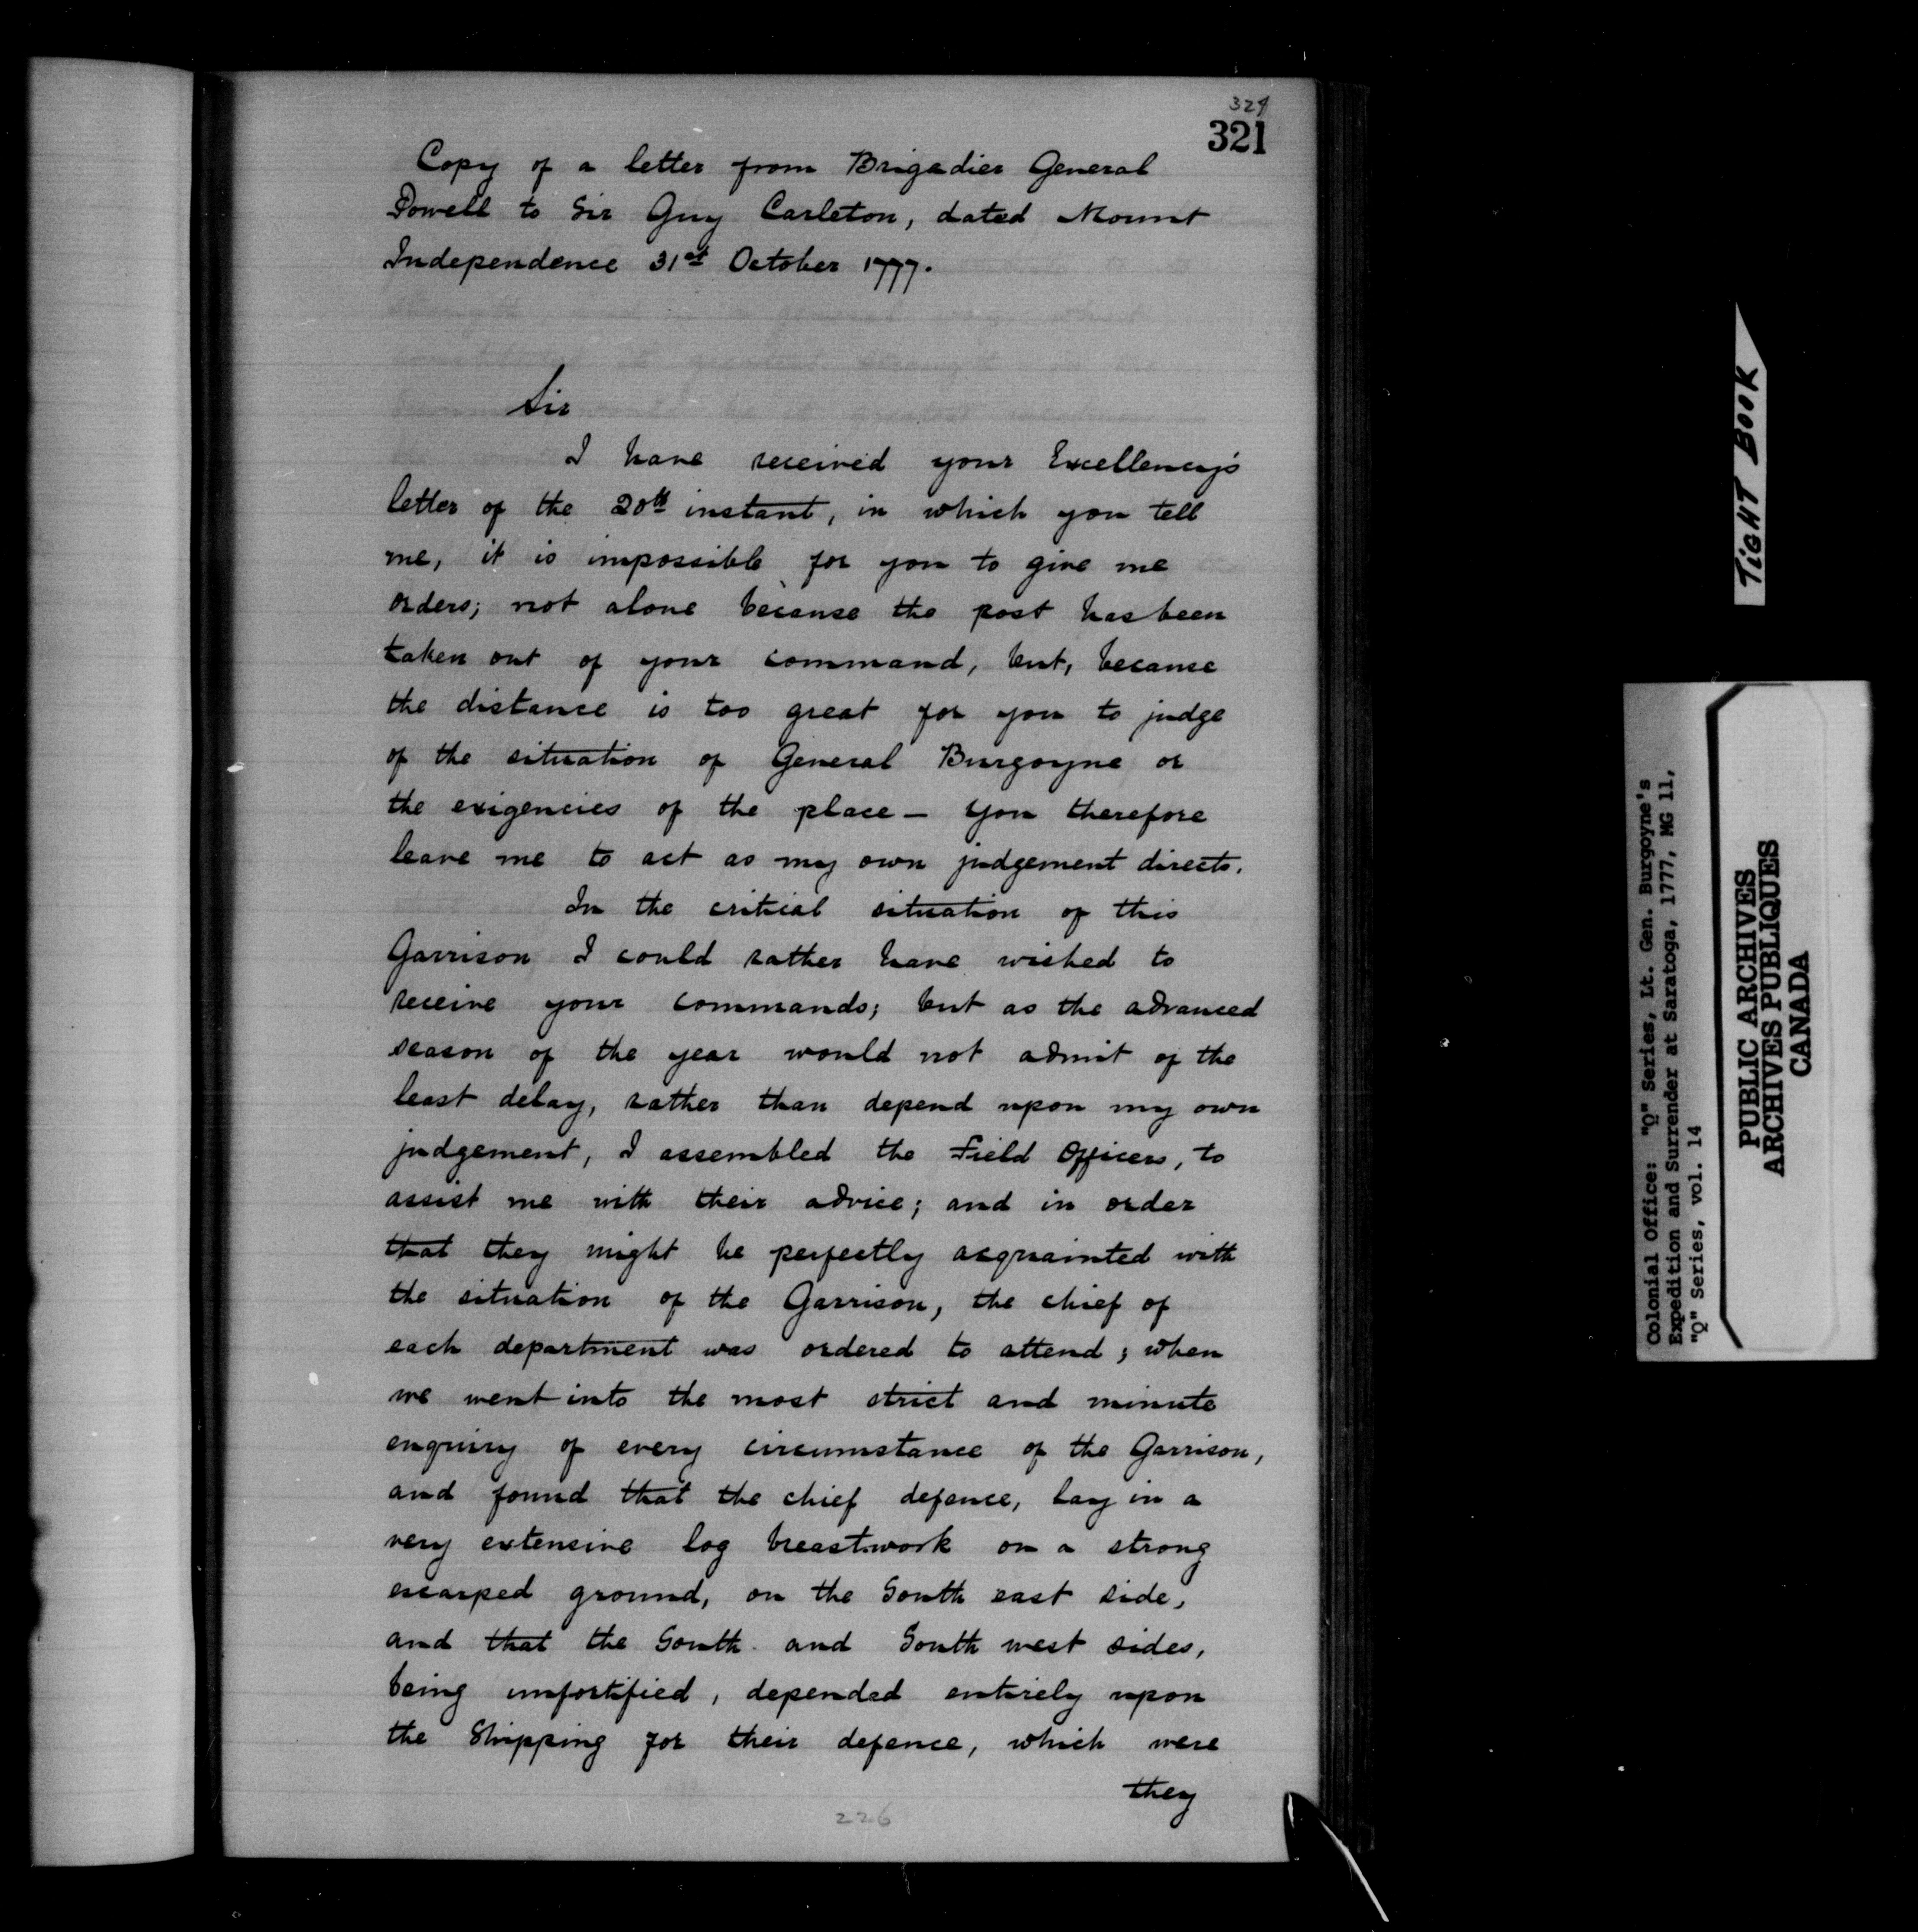 324
321
Copy of a letter from Brigadier General
Powell to Sir Guy Carleton, dated Mount
Independence 31st October 1777.
Sir
I have received your Excellency's
letter of the 20th instant, in which you tell
me, it is impossible for you to give me
orders; not alone because the post has been
taken out of your command, but, because
the distance is too great for you to judge
of the situation of General Burgoyne or
the exigencies of the place - you therefore
leave me to act as my own judgement directs.
In the critical situation of this
Garrison I could rather have wished to
receive your commands; but as the advanced
season of the year would not admit of the
least delay, rather than depend upon my own
judgement, I assembled the Field Officers, to
assist me with their advice; and in order
that they might be perfectly acquainted with
the situation of the Garrison, the chief of
each department was ordered to attend; when
we went into the most strict and minute
enquiry of every circumstance of the Garrison,
and found that the chief defence, lay in a
very extensive log breastwork on a strong
escarped ground, on the South east side,
and that the South and South west sides,
being unfortified, depended entirely upon
the Shipping for their defence, which were
they
226
TIGHT BOOK
Colonial Office: "Q" Series, Lt. Gen. Burgoyne's
Expedition and Surrender at Saratoga, 1777, MG 11,
"Q" Series, vol. 14
PUBLIC ARCHIVES
ARCHIVES PUBLIQUES
CANADA